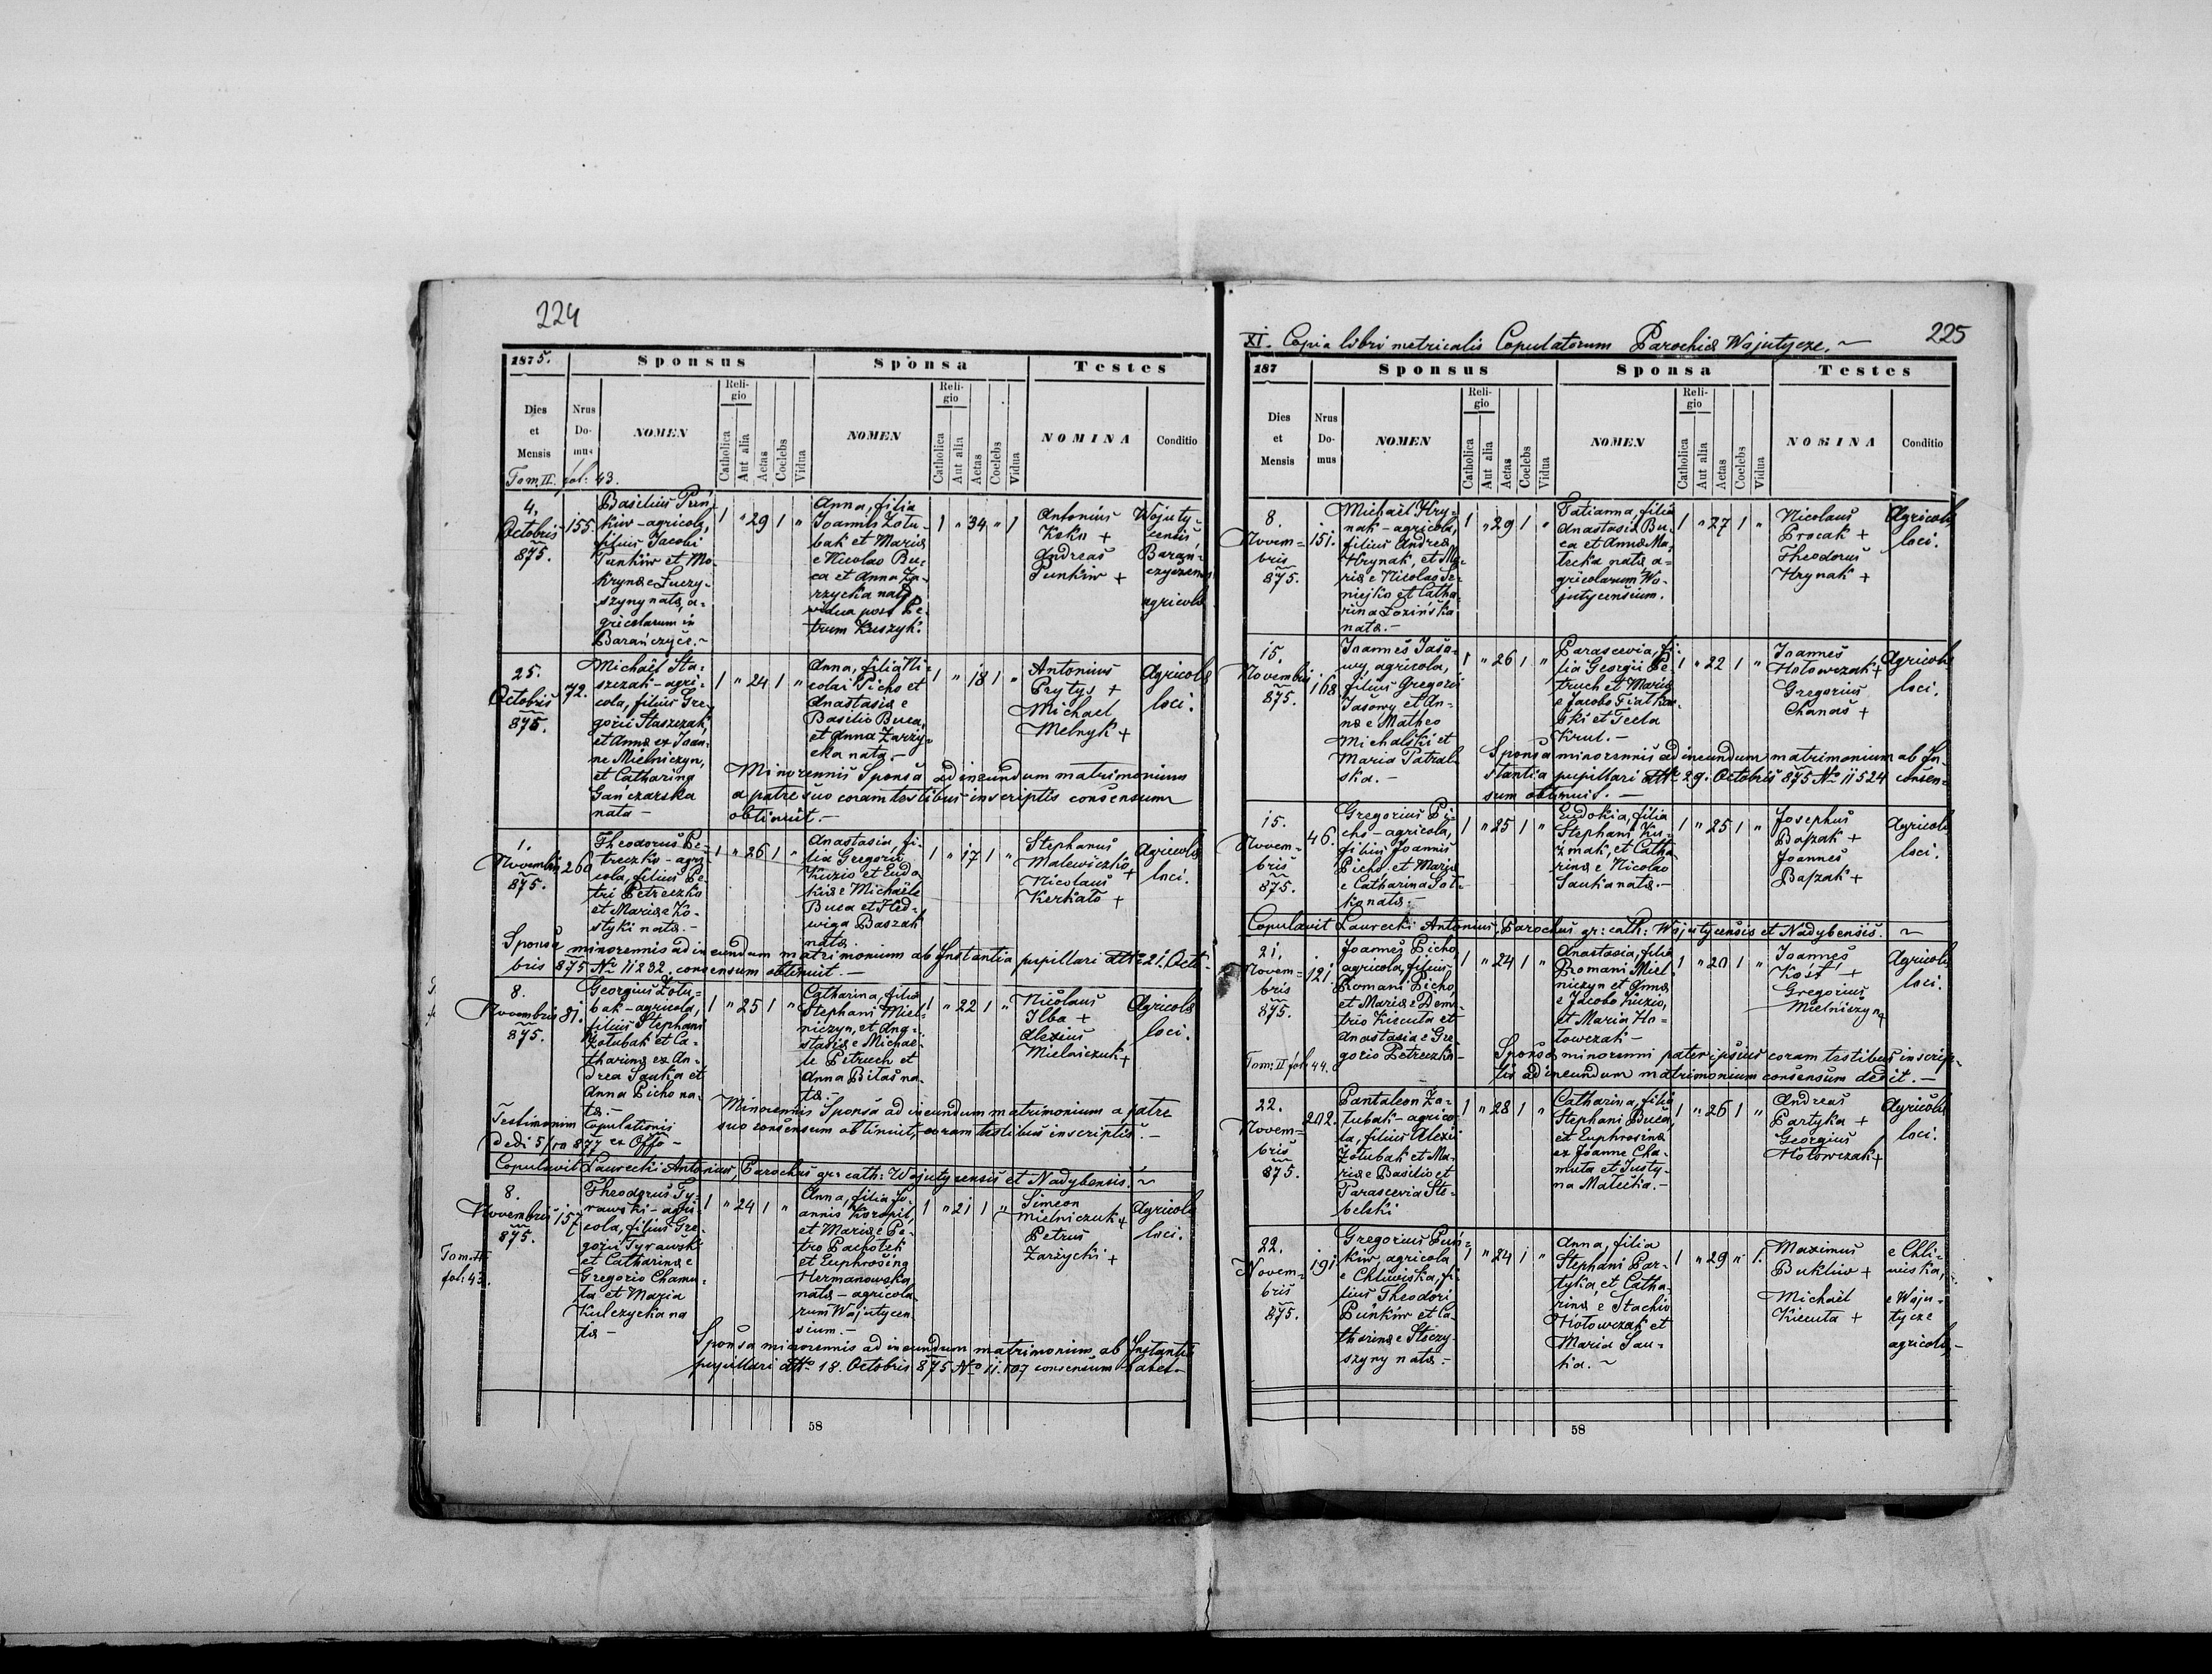 224
1875.
Sponsus
Sponsa
Testes
Dies et Mensis
Nrus Domus
NOMEN
Religio
Catholica
Aut alia
Aetas
Coelebs
Vidua
NOMEN
Religio
Catholica
Aut alia
Aetas
Coelebs
Vidua
NOMINA
Conditio
Tom II. fol: 43.
4.
Octobris
875.
155.
Basilius Pun-
kiw - agricola,
filius Jacobi
Punkiw et Mo-
krynae Luczy-
szyny nata, a-
gricolarum in
Barańczyce. ~
1 " 29 1 "
Anna, filia
Joannis Zołu-
bak et Mariae
e Nicolao Bu-
ca et Anna Za-
rzycka nata,
vidua post Pe-
trum Kuszyk.
1 " 34 " 1
Antonius
Koko +
Andreas
Punkiw +
Wojuty-
censis,
Barań-
czycensis
agricolae
25.
Octobris
875.
72.
Michaël Sta-
szczak - agri-
cola, filius Gre-
gorii Staszczak,
et Annae ex Joan-
ne Mielniczyn,
et Catharina
Gańczarska
nata -
1 " 24 1 "
Anna, filia Ni-
colai Picho et
Anastasiae e
Basilio Buca,
et Anna Zarzy-
cka nata. -
1 " 18 1 "
Antonius
Prytys +
Michael
Melnyk +
Agricolae
loci.
Minorennis Sponsa ad ineundum matrimonium
a patre suo coram testibus inscriptis consensum
obtinuit. -
1.
Novembris
875.
260
Theodorus Pe-
treczko - agri-
cola, filius Pe-
tri Petreczko
et Mariae Ko-
styki nata. -
1 " 26 1 "
Anastasia, fi-
lia Gregorii
Kuzio et Eudo-
kiae Michaele
Buca et Hed-
wiga Baszak
nata.
1 " 17 1 "
Stephanus
Malewiczko +
Nicolaus
Kerkało +
Agricolae
loci.
Sponsa minorennis ad ineundum matrimonium ab Instantia pupillari ddto 21. Octo-
bris 875 No 11232. consensum obtinuit. -
8.
Novembris
875.
81.
Georgius Zołu-
bak - agricola,
filius Stephani
Zołubak et Ca-
tharinae ex An-
drea Sauka et
Anna Picho na-
ta. -
1 " 25 1 "
Catharina, filia
Stephani Miel-
niczyn, et Ana-
stasiae Michae-
le Petruch et
Anna Bilas na-
ta. -
1 " 22 1 "
Nicolaus
Ilba +
Alexius
Mielniczuk +
Agricolae
loci.
Minorennis Sponsa ad ineundum matrimonium a patre
suo consensum obtinuit, coram testibus inscriptis. -
Testimonium Copulationis
dedi 877 ex Offo -
Copulavit Laurecki Antonius, Parochus gr: cath: Wojutycensis et Nadybensis. ~
8.
Novembris
875.
157
Tom. II
fol: 43.
Theodorus Ty-
rawski - agri-
cola, filius Gre-
gorii Tyrawski
et Catharinae
Gregorio Chamu-
ta et Maria
Kulczycka na
ta -
1 " 24 1 "
Anna, filia Jo-
annis Koropil,
et Mariae Pe-
tro Pachołek
et Euphrosina
Hermanowska,
nata - agricola-
rum Wojutycen-
sium. -
1 " 21 1 "
Simeon
Mielniczuk +
Petrus
Zarżycki +
Agricolae
loci.
Sponsa minorennis ad ineundum matrimonium ab Instantia
pupillari ddto 18. Octobris 875 No 11.107 consensum habet -
58
XI. Copia libri metricalis Copulatorum Parochiae Wojutycze. ~
225
187
Sponsus
Sponsa
Testes
Dies et Mensis
Nrus Domus
NOMEN
Religio
Catholica
Aut alia
Aetas
Coelebs
Vidua
NOMEN
Religio
Catholica
Aut alia
Aetas
Coelebs
Vidua
NOMINA
Conditio
8.
Novem-
bris
875.
151.
Michaël Hry-
nak - agricola,
filius Andreae
Hrynak, et Ma-
riae Nicolao Se-
niejko et Catha-
rina Łozińska
nata. -
1 " 29 1 "
Tatianna, filia
Anastasii Bu-
ca et Annae Ma-
tecka nata, a-
gricolarum Wo-
jutycensium.
1 " 27 1 "
Nicolaus
Procak +
Theodorus
Hrynak +
Agricolae
loci.
15.
Novembris
875.
168
Joannes Jaso-
wy, agricola,
filius Gregorii
Jasowy et An-
nae Matheo
Michalski et
Maria Patral-
ska. -
1 " 26 1 "
Parascevia, fi-
lia Georgii Pe-
truch et Mariae
e Jacobo Fiałkow-
ski et Tecla
Krul. -
1 " 22 1 "
Joannes
Hołowczak +
Gregorius
Chanas +
Agricolae
loci.
Sponsa minorennis ad ineundum matrimonium ab In-
stantia pupillari ddto 29. Octobris 875 No 11524 consen-
sum obtinuit. -
15.
Novem-
bris
875.
46.
Gregorius Pi-
cho - agricola,
filius Joannis
Picho et Mariae
e Catharina Sot-
ko nata. -
1 " 25 1 "
Eudokia, filia
Stephani Ku-
zmak, et Catha-
rinae Nicolao
Sauka nata. -
1 " 25 1 "
Josephus
Baszak +
Joannes
Baszak +
Agricolae
loci.
Copulavit Laurecki Antonius, Parochus gr: cath: Wojutycensis et Nadybensis. ~
21.
Novem-
bris
875.
121.
Tom: II fol: 44.
Joannes Picho
agricola, filius
Romani Picho
et Mariae Demi-
trio Kicuta et
Anastasia e Gre-
gorio Petreczko -
1 " 24 1 "
Anastasia, filia
Romani Miel-
niczyn et Annae
e Jacobo Kuzio,
et Maria Ho-
łowczak -
1 " 20 1 "
Joannes
Kość +
Gregorius
Mielniczyn +
Agricolae
loci.
Sponsae minorenni pater ipsius coram testibus inscrip-
tis ad ineundum matrimonium consensum dedit. -
22.
Novem-
bris
875.
202.
Pantaleon Zo-
łubak - agrico-
la, filius Alexii
Zołubak et Ma-
riae Basilio et
Parascevia Ste-
belski
1 " 28 1 "
Catharina, filia
Stephani Buca,
et Euphrosinae
ex Joanne Cha-
muta et Justy-
na Matecka. -
1 " 26 1 "
Andreas
Partyka +
Georgius
Hołowczak +
Agricolae
loci.
22.
Novem-
bris
875.
191
Gregorius Pun-
kiw, agricola
e Chliwiska, fi-
lius Theodori
Punkiw et Ca-
tharinae Steczy-
szyny nata. -
1 " 24 1 "
Anna, filia
Stephani Par-
tyka, et Catha-
rinae Stachio
Hołowczak et
Maria Sau-
ka. ~
1 " 29 " 1.
Maximus
Bukliw +
Michaël
Kicuta +
e Chli-
wiska,
e Woju-
tycze
agricolae, -
58